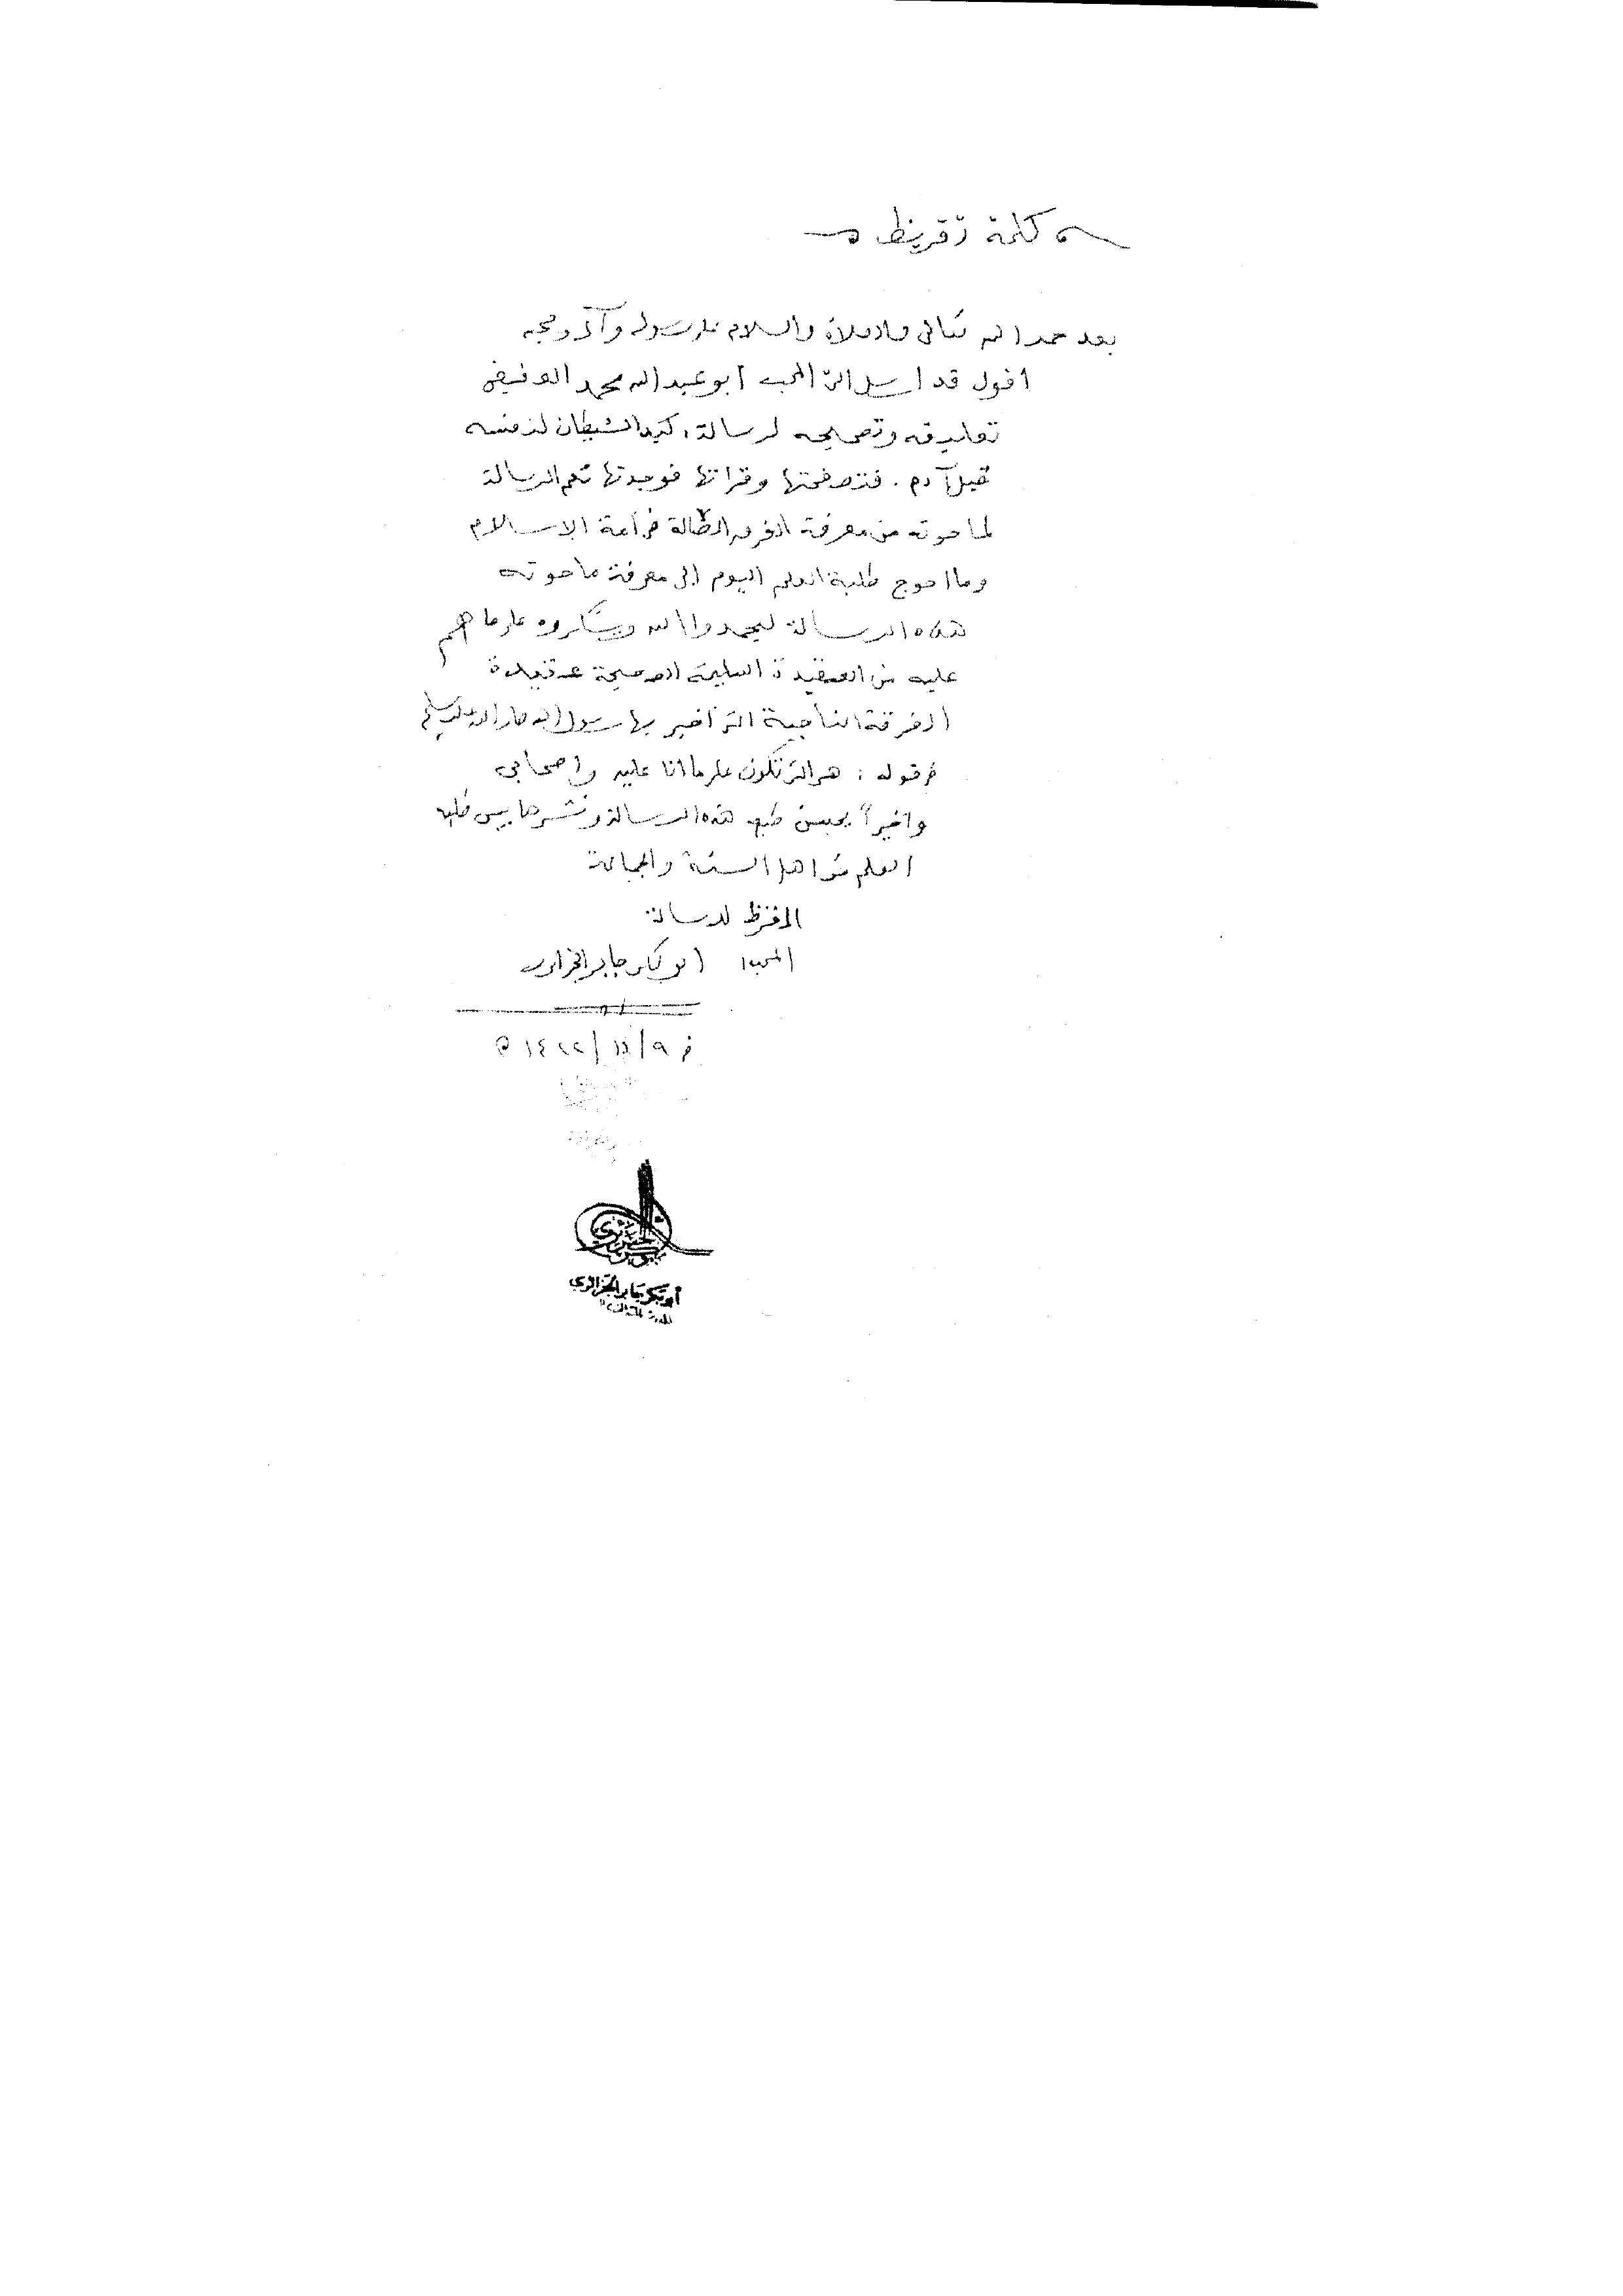 كلمة تقريظ
بعد حمد الله تعالى والصلاة والسلام على رسوله وآله وصحبه
اقول قد ارسل الىّ المحب ابو عبد الله محمد العفيفي
تعليقه وتصحيحه لرسالة: كيد الشيطان لنفسه
قبل آدم. فتصفحتها وقراتها فوجدتها نعم الرسالة
لما حوته من معرفة الفرق الضالة في امة الاسلام
وما احوج طلبة العلم اليوم الى معرفة ما حوته
هذه الرسالة ليحمدوا الله ويشكروه على ما هم
عليه من العقيدة السليمة الصحيحة عقيدة
الفرقة الناجية التي اخبر بها رسول الله صلى الله عليه وسلم
في قوله: هي التي تكون على ما انا عليه واصحابي
واخيراً يحسن طبع هذه الرسالة ونشرها بين طلبة
العلم من اهل السنة والجماعة
المقرظ للرسالة
المحب ابو بكر جابر الجزائري
في ٩/ /١٤٢٢ ه
أبو بكر جابر الجزائري